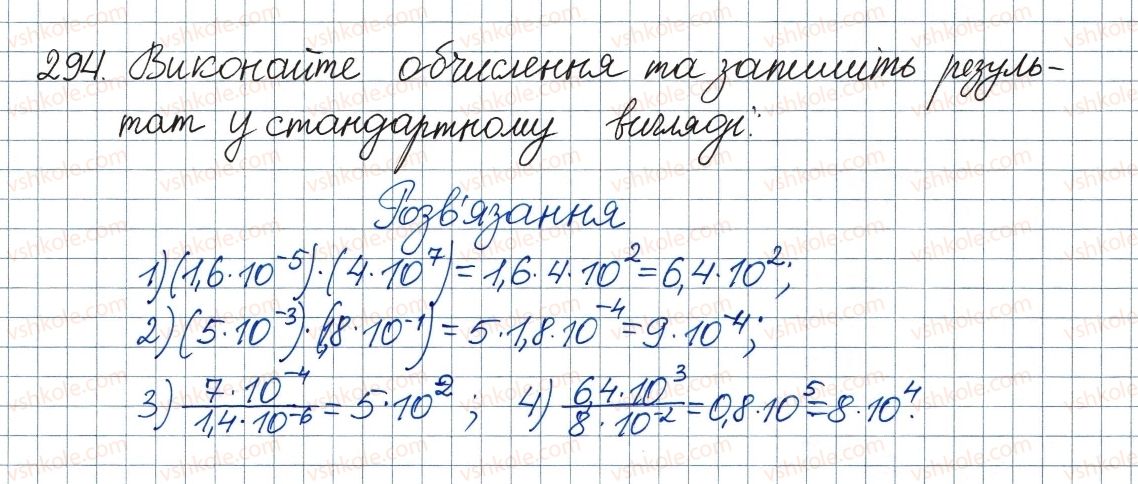 294. Виконайте обчислення та запишіть резуль-
тат у стандартному вигляді:
Розв'язання
1) (1,6·10⁻⁵)·(4·10⁷) = 1,6·4·10² = 6,4·10²;
2) (5·10⁻³)·(1,8·10⁻¹) = 5·1,8·10⁻⁴ = 9·10⁻⁴;
3) 7·10⁻⁴/1,4·10⁻⁶ = 5·10² ; 4) 6,4·10³/8·10⁻² = 0,8·10⁵ = 8·10⁴.